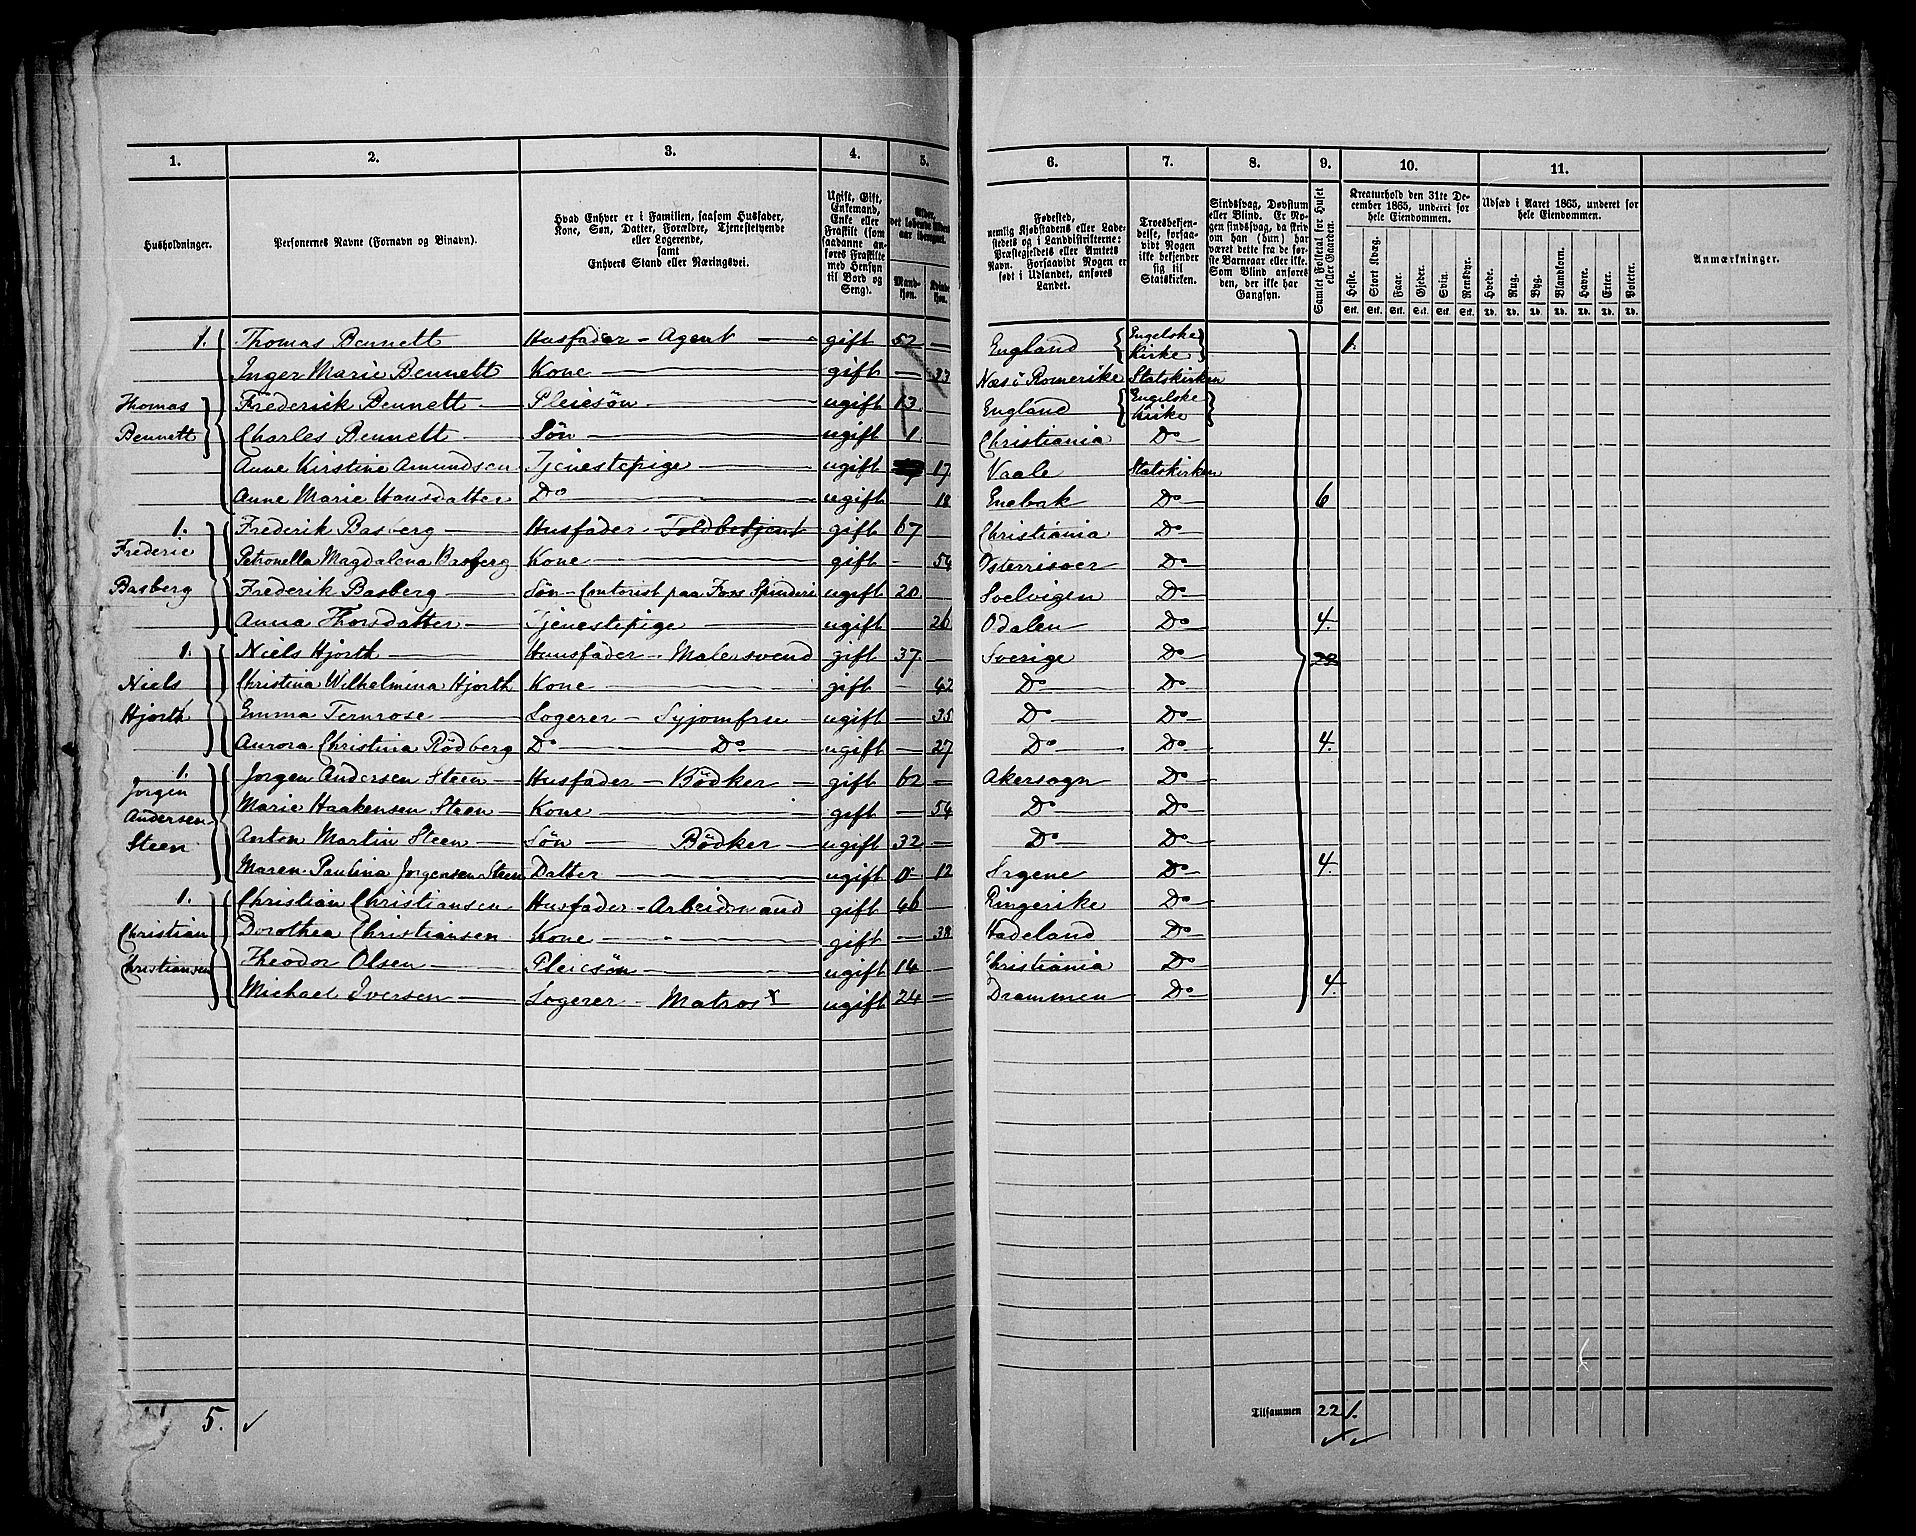 1. 2. 3. 4. 5. 6. 7. 8. 9. 10. 11.
Husholdninger.
Personernes Navne (Fornavn og Binavn).
Hvad Enhver er i Familien, saasom Husfader,
Kone, Søn, Datter, Forældre, Tjenestetyende
eller Logerende,
samt
Enhvers Stand eller Næringsvei.
Ugift, Gift,
Enkemand,
Enke eller
Fraskilt (som
saadanne an-
føres Fraskilte
med Hensyn
til Bord og
Seng).
Alder,
det løbende Alders-
aar iberegnet.
Mand-
kjøn.
Kvinde-
kjøn.
Fødested,
nemlig Kjøbstadens eller Lade-
stedets og i Landdistrikterne:
Præstegjeldets eller Amtets
Navn. Forsaavidt Nogen er
født i Udlandet, anføres
Landet.
Troesbekjen-
delse, forsaa-
vidt Nogen
ikke bekjender
sig til
Statskirken.
Sindssvag, Døvstum
eller Blind. Er No-
gen sindssvag, da skriv
om han (hun) har
været dette fra de før-
ste Barneaar eller ikke.
Som Blind anføres
den, der ikke har
Gangsyn.
Samlet Folketal for Huset
eller Gaarden.
Kreaturhold den 31te De-
cember 1865, underet for
hele Eiendommen.
Heste. Stort Kvæg. Faar. Gjeder. Svin. Rensdyr.
Stk. Stk. Stk. Stk. Stk. Stk.
Udsæd i Aaret 1865, underet for
hele Eiendommen.
Hvede. Rug. Byg. Blandkorn. Havre. Erter. Poteter.
Td. Td. Td. Td. Td. Td. Td.
Anmærkninger.
1. Thomas Bennett Husfader - Agent gift 52 — England {Engelske Kirke} 1.
Inger Marie Bennett Kone gift — 33 Næs i Romerike Statskirken
Thomas Frederik Bennett Pleiesön ugift 13 England {Engelske Kirke}
Bennett Charles Bennett Sön ugift 1 Christiania Do
Anne Kirstine Amundsen Tjenestepige ugift 17 Vaale Statskirken
Anne Marie Hansdatter Do ugift 18 Enebak Do 6
1. Frederik Basberg Husfader - Toldbetjent gift 67 Christiania Do
Frederic Petronella Magdalena Basberg Kone gift - 54 Osterrisoer Do
Basberg Frederik Basberg Sön - Contorist paa Foss Spinderi ugift 20 Svelvigen Do
Anna Thorsdatter Tjenestepige ugift 26 Odalen Do 4.
1. Niels Hjorth Huusfader - Malersvend gift 37. Sverige Do 22
Niels Christina Wilhelmina Hjorth Kone gift - 42 Do Do
Hjorth Emma Ternrose Logerer - Syjomfru ugift — 35 Do Do
Aurora Christina Rödberg Do Do ugift — 27 Do Do 4.
1. Jorgen Andersen Steen Husfader - Bödker gift 62 — Akersogn Do
Jorgen Marie Haakensen Steen Kone gift — 54 Do Do
Andersen Anton Martin Steen Sön Bödker ugift 32 — Do Do
Steen Maren Paulina Jorgensen Steen Datter ugift 12 Do 4.
1. Christian Christiansen Husfader - Arbeidsmand gift 46 — Ringerike Do
Christian Dorothea Christiansen Kone gift — 38 Hadeland Do
Christiansen Theodor Olsen Pleiesön ugift 14 — Christiania Do
Michael Iversen Logerer - Matros x ugift 24 — Drammen Do 4.
5. ✓ Tilsammen 22 1.
✓ ✓